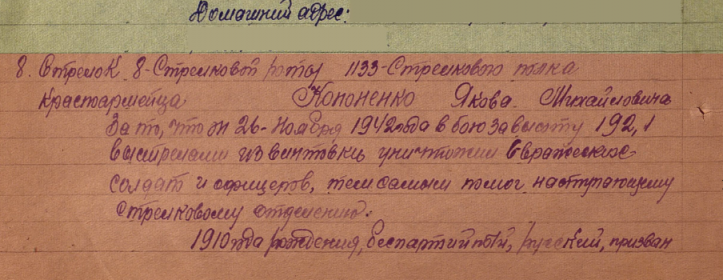 Домашний адрес:
8. Стрелок 8-Стрелковой роты 1133-Стрелкового полка
красноармейца Кононенко Якова Михайловича
За то, что он 26-Ноября 1942 года в бою за высоту 192,1
выстрелами из винтовки уничтожил 6 вражеских
солдат и офицеров, тем самым помог наступающему
стрелковому отделению.
1910 года рождения, беспартийный, русский, призван